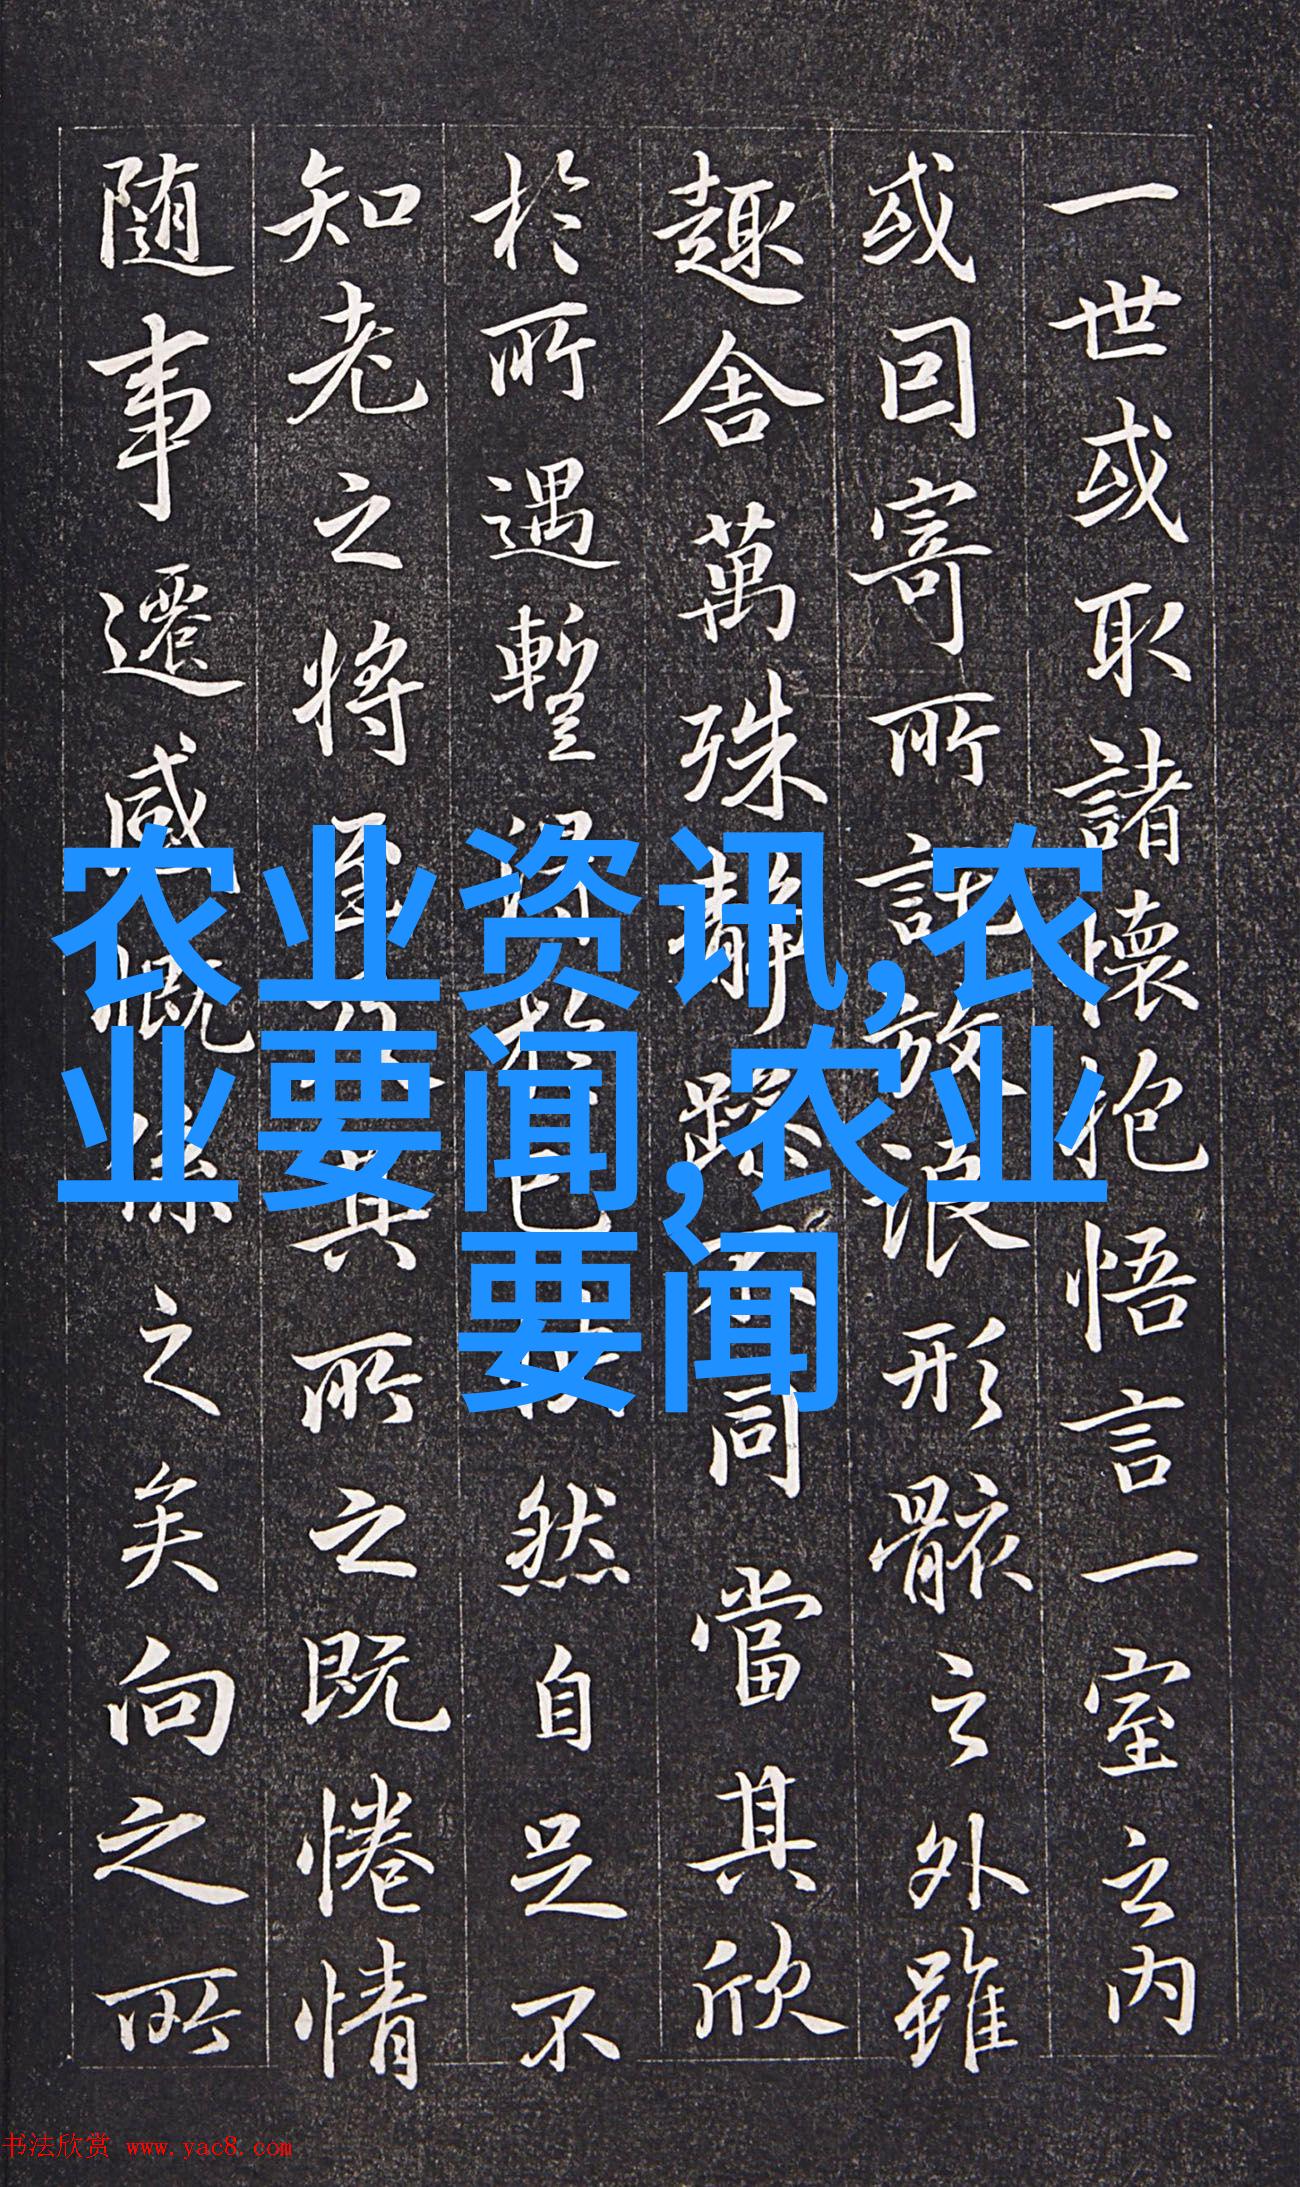 一世或取諸懷抱悟言一室之内
或囙寄所託放浪形骸之外雖
趣舍萬殊靜躁不同當其欣
於所遇暫得於己快然自足不
知老之將至及其所之既惓情
随事遷感慨係之矣向之所
农业资讯,农
业要闻,农业
要闻
书法欣赏 www.yac8.com